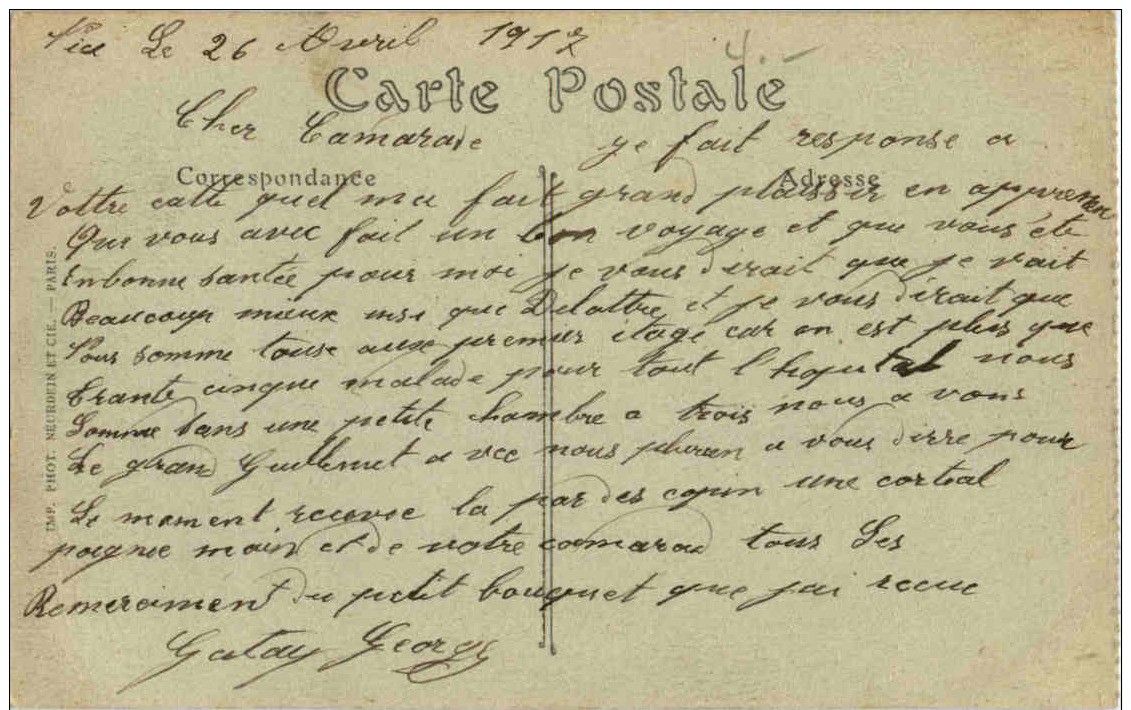 Vic Le 26 Avril 1917
Carte Postale
Cher Camarade je fait response a
Correspondance
Adresse
Vottre catte quel ma fait grand plaisser en apprenen
Que vous avec fait un bon voyage et que vous été
En bonne santée pour moi je vous dirait que je vait
Beaucoup mieux insi que Delattre et je vous dirait que
Nous somme touse aux premier étage car on est plus que
trante cinque malade pour tout l'hopital nous
Somme dans une petite chambre a trois nous a vons
Le grand Guillemet a vec nous a vous dirre pour
Le moment recevec la par des copin une cortial
poignee main et de votre camarad tous Ses
Remerciment du petit bouquet que jai recue
Gatay Georges
IMP. PHOT. NEURDEIN ET CIE. — PARIS.